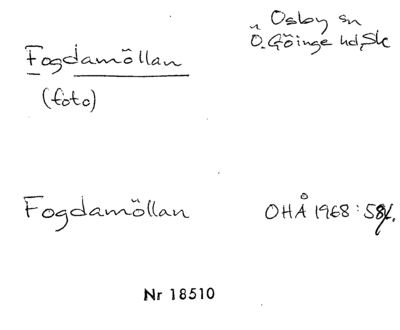 Osby sn
Fogdamöllan
Ö. Göinge hd, Sk
(foto)
Fogdamöllan
OHÅ 1968:58f.
Nr 18510